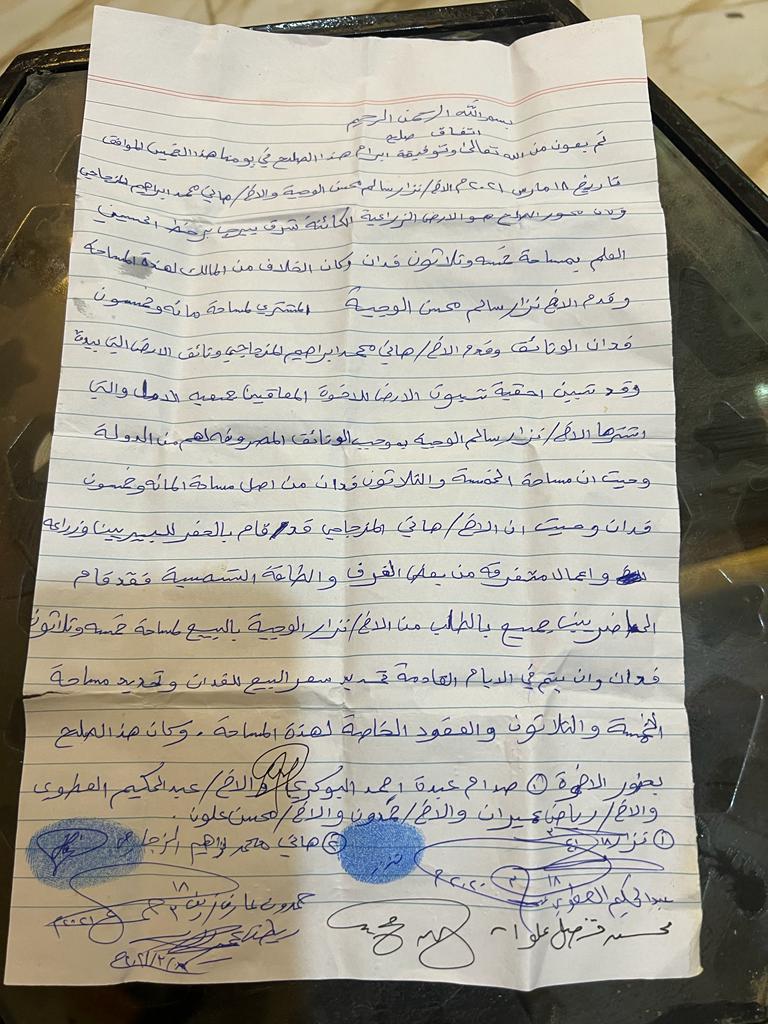 بسم الله الرحمن الرحيم
اتفاق صلح
تم بعون من الله تعالى وتوفيقة ابرام هذا الصلح في يومنا هذا الخميس الموافق
تاريخ ١٨ مارس ٢٠٢١م الاخ/ نزار سالم محسن الوجية والاخ/ هاني محمد ابراهيم المزجاجي
وكان محور الصلح هو الارض الزراعية الكائنة شرق بير
العلم بمساحة خمسه وثلاثون فدان وكان الخلاف من المالك لهذة المساحه
وقدم الاخ نزار سالم محسن الوجية المشتري لمساحة مائه وخمسون
فدان الوثائق وقدم الاخ/ هاني محمد ابراهيم المزجاجي وثائق الارض التي بيدة
وقد تبين احقية الارض للاخوة المعاقين جمعيه الامل والتي
اشتراها الاخ/ نزار سالم الوجيه بموجب الوثائق المصروفه لهم من الدولة
وحيث ان مساحة الخمسة والثلاثون فدان من اصل مساحة المائه وخمسون
فدان وحيث ان الاخ/ هاني المزجاجي قد قام بالحفر للبيرين وزراعه
واعمال متفرقه من بعض الغرف والطاقة الشمسية فقد قام
الحاضرين جميع بالطلب من الاخ/ نزار الوجية بالبيع لمساحة خمسه وثلاثون
فدان وان يتم في الايام القادمة تحديد سعر البيع للفدان وتحديد مساحة
الخمسة والثلاثون والعقود الخاصة لهذة المساحة. وكان هذا الصلح
بحضور الاخوة ① صدام عبدة احمد البوكري والاخ/ عبدالحكيم العطوي
والاخ/ رياض عميران والاخ/ حمدون والاخ/ محسن علوان.
① نزار ② هاني محمد ابراهيم المزجاجي
عبدالحكيم حمدون عارف
محسن علوان